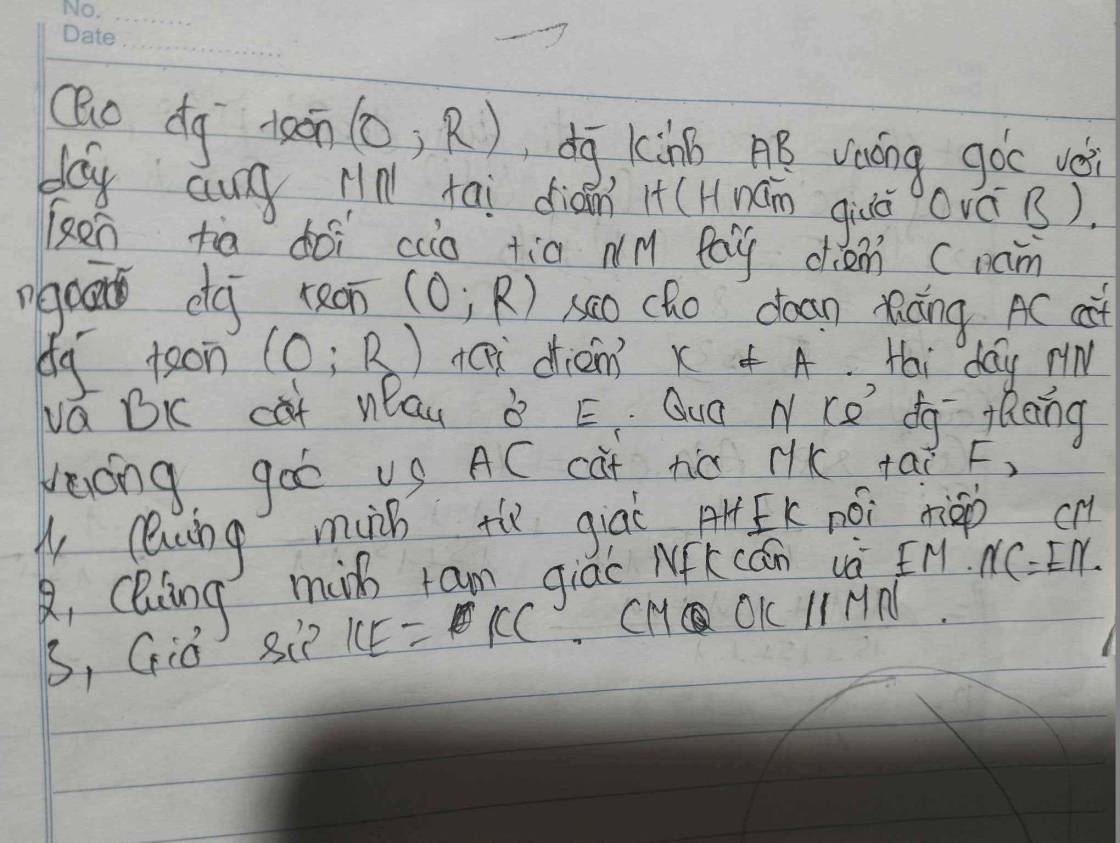 No. ..........
Date ....................
Cho đg tròn (O ; R), đg kính AB vuông góc với
dây cung MN tại điểm H (H nằm giữa O và B).
Trên tia đối của tia NM lấy điểm C nằm
ngoài đg tròn (O ; R) sao cho đoạn thẳng AC cắt
đg tròn (O ; R) tại điểm K ≠ A. Hai dây MN
và BK cắt nhau ở E. Qua N kẻ đg thẳng
vuông góc vs AC cắt tia MK tại F,
1, Chứng minh tứ giác AHEK nội tiếp CM
2, Chứng minh tam giác NFK cân và EM.NC=EN.
3, Giả sử KE = KC. CM OK // MN.